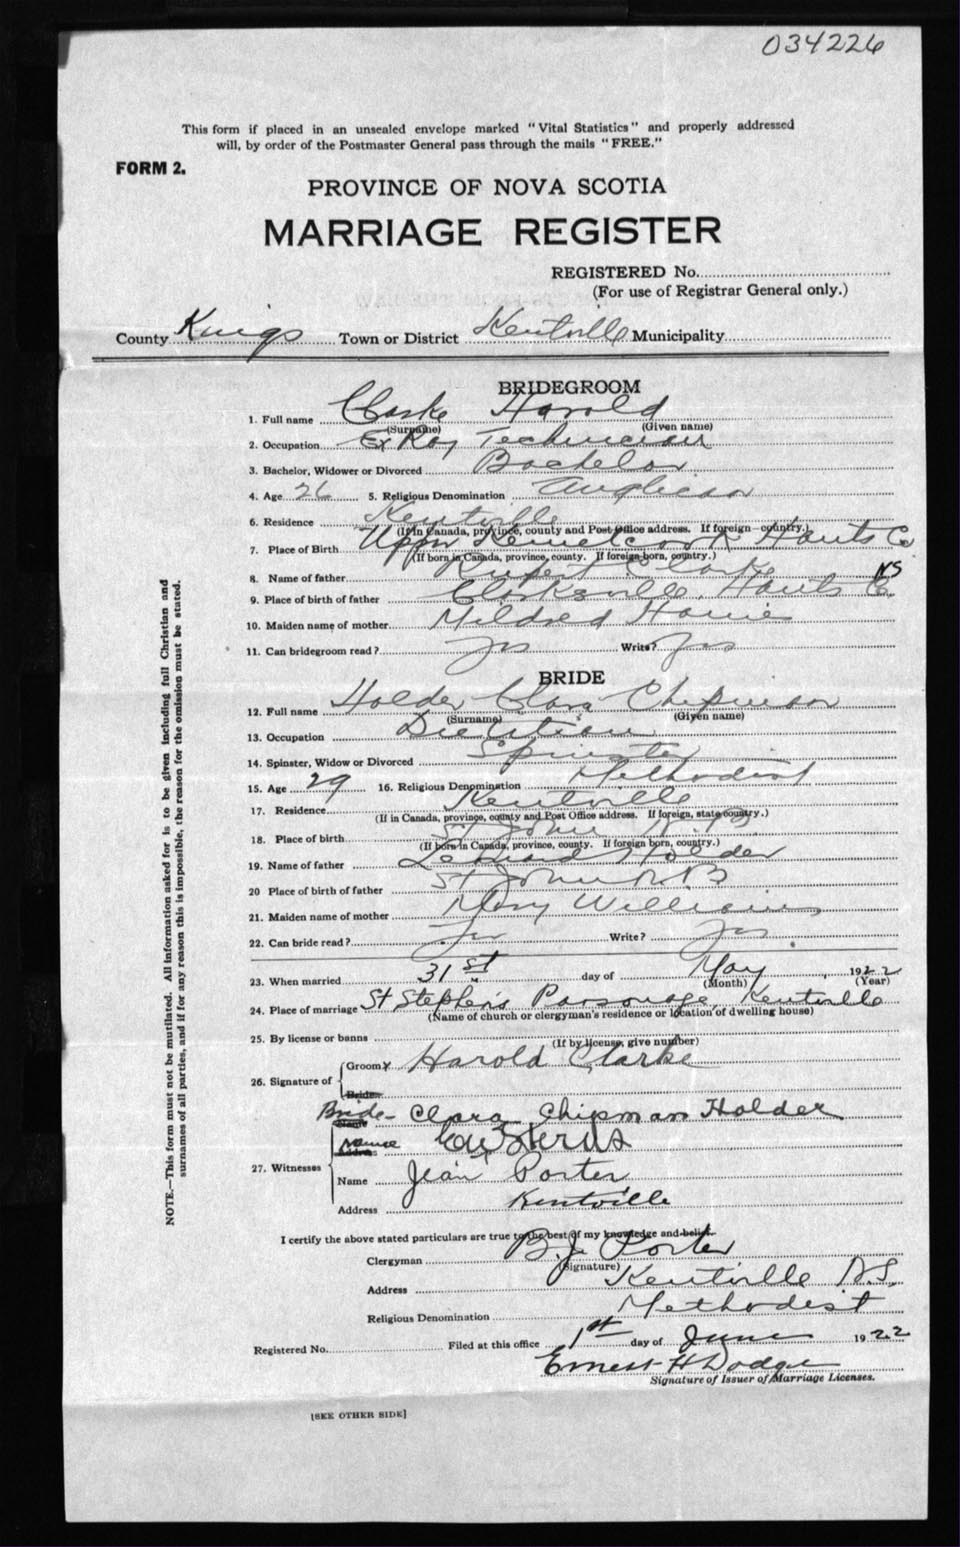 034226
This form if placed in an unsealed envelope marked "Vital Statistics" and properly addressed
will, by order of the Postmaster General pass through the mails "FREE."
FORM 2.
PROVINCE OF NOVA SCOTIA
MARRIAGE REGISTER
REGISTERED No.
(For use of Registrar General only.)
County Kings Town or District Kentville Municipality
BRIDEGROOM
1. Full name Clarke Harold
(Surname) (Given name)
2. Occupation Ex Ray Technician
3. Bachelor, Widower or Divorced Bachelor
4. Age 26 5. Religious Denomination Anglican
6. Residence Kentville
(If in Canada, province, county and Post Office address. If foreign country.)
7. Place of Birth Upper Kennetcook Hants Co
(If born in Canada, province, county. If foreign born, country.) NS
8. Name of father Rupert Clarke
9. Place of birth of father Clarksville, Hants Co.
10. Maiden name of mother Mildred
11. Can bridegroom read? Yes Write? Yes
BRIDE
12. Full name Holder Clara Chipman
(Surname) (Given name)
13. Occupation Dietitian
14. Spinster, Widow or Divorced Spinster
15. Age 29 16. Religious Denomination Methodist
17. Residence Kentville
(If in Canada, province, county and Post Office address. If foreign, state country.)
18. Place of birth St John N.B
(If born in Canada, province, county. If foreign born, country.)
19. Name of father Holder
20 Place of birth of father St John N.B
21. Maiden name of mother Mary Williams
22. Can bride read? Yes Write? Yes
23. When married 31st day of May, 1922
(Month) (Year)
24. Place of marriage St Stephen's Parsonage, Kentville
(Name of church or clergyman's residence or location of dwelling house)
25. By license or banns
(If by license, give number)
26. Signature of Groom x Harold Clarke
Bride
Bride- Clara Chipman Holder
Name
27. Witnesses
Name Jean Porter
Address Kentville
I certify the above stated particulars are true to the best of my knowledge and belief.
Clergyman B. J. Porter
(Signature)
Address Kentville N.S.
Religious Denomination Methodist
Registered No. Filed at this office 1st day of June 1922
Ernest H Dodge
Signature of Issuer of Marriage Licenses.
[SEE OTHER SIDE]
NOTE.—This form must not be mutilated. All information asked for is to be given including full Christian and
surnames of all parties, and if for any reason this is impossible, the reason for the omission must be stated.